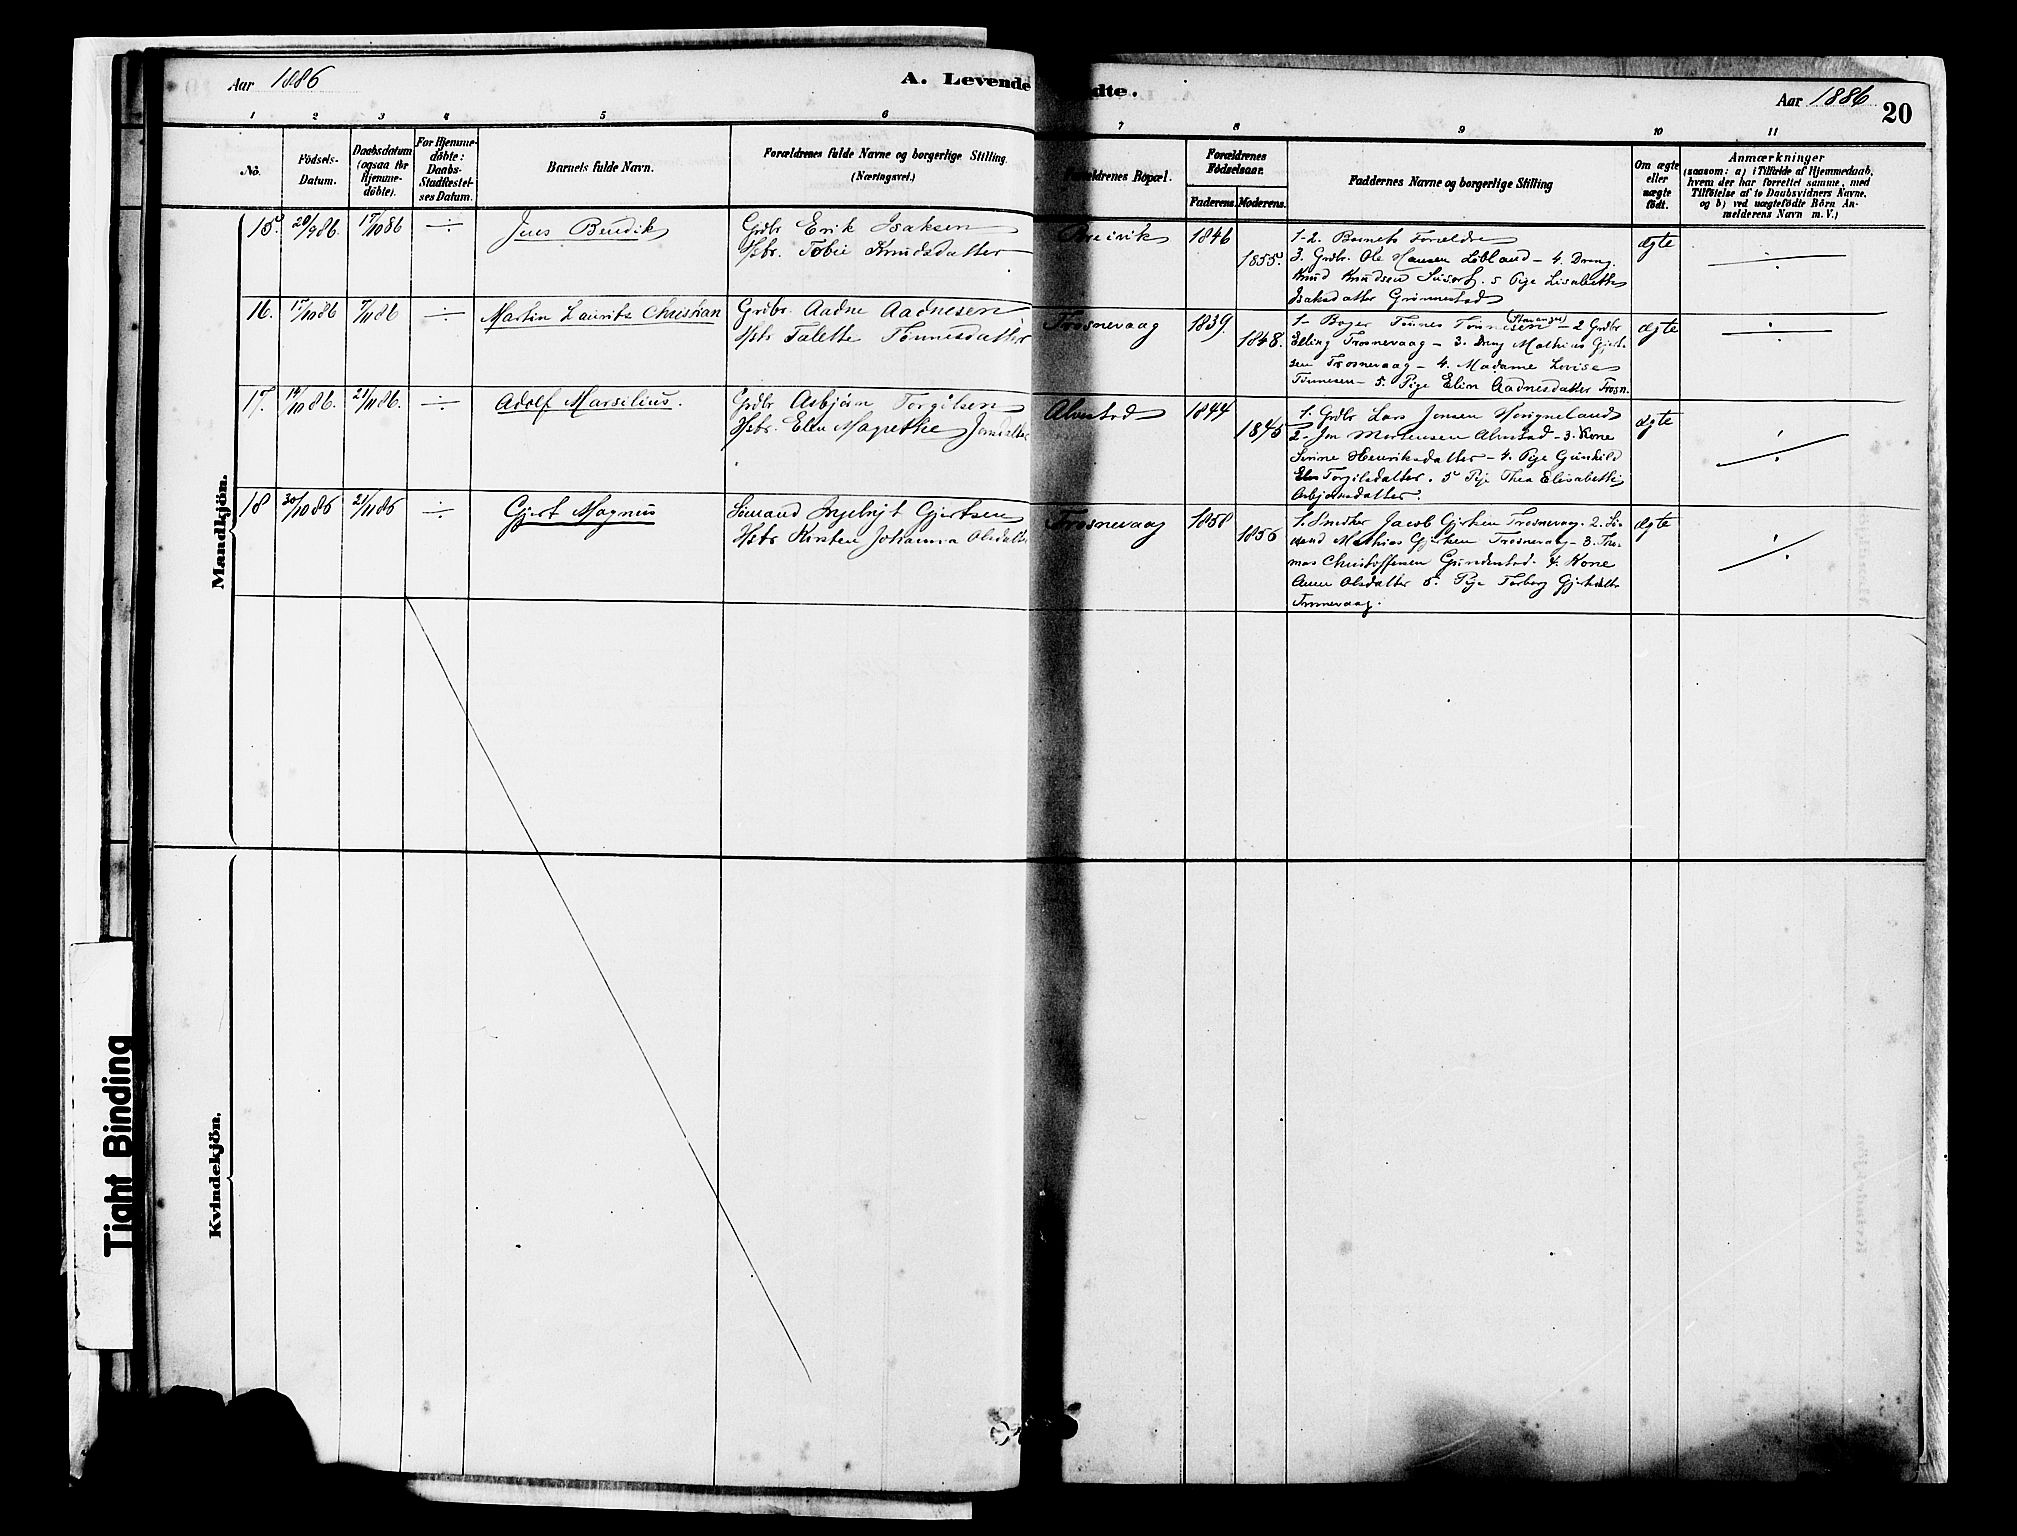 Aar 1886
A. Levende
dte.
Aar 1886 20
1 2 3 4 5 6 7 8 9 10 11
No.
Födsels-
Datum.
Daabsdatum
(ogsaa for
Hjemme-
döbte).
For Hjemme-
döbte:
Daabs-
Stadfæstel-
ses Datum.
Barnets fulde Navn.
Forældrenes fulde Navne og borgerlige Stilling.
(Næringsvei.)
Forældrenes Bopæl.
Forældrenes
Födselsaar.
Faderens. Moderens.
Faddernes Navne og borgerlige Stilling
Om ægte
eller
uægte
födt.
Anmærkninger
(saasom: a) i Tilfælde af Hjemmedaab,
hvem der har forrettet samme, med
Tilföielse af to Daabsvidners Navne,
og b) ved uægtefödte Börn An-
melderens Navn m. V.)
Mandkjön.
15. 29/9 86. 17/10 86 ÷ Jens Bendik
Grdbr. Erik Isaksen
Hstr. Tobie Knudsdatter
1846
1855.
1-2. Barnets Forældre
3. Grdbr. Ole Hansen Lobland - 4. Dreng
Knud Knudsen . 5 Pige Lisabetha
Isaksdatter Grønnestad
ægte ÷
16. 17/10 86 7/11 86 ÷ Martin Laurits Christian
Grdbr. Aadne Aadnesen
Hstr. Talette Tønnesdatter
Trosnevaag 1839.
1848.
1- Tønnes Tønnesen (Stavanger) - 2 Grdbr
Elling Trosnevaag - 3. Dreng Mathias Gjert-
sen Trosnevaag - 4. Madame Lovise
Tønnesen - 5. Pige Elen Aadnesdatter Trosn.
ægte ÷
17. 14/10 86. 21/11 86. ÷ Adolf Marsilius.
Grdbr Asbjörn Torgilsen
Hstr. Elen Magrethe Jonsdatter
Alvestad 1844
1845
1. Grdbr Lars Jonsen
2. Jon Mortensen Alvestad - 3. Kone
Henriksdatter - 4. Pige Gunhild
Elen Torgilsdatter. 5 Pige Thea Elisabetha
Asbjørnsdatter.
ægte ÷
18 30/10 86 21/11 86 ÷ Gjert Magnus
Sömand Ingebrigt Gjertsen
Hstr Kirsten Johanna Olsdatter
Trosnevaag 1858
1856
1. Smeker Jacob Gjertsen Trosnevaag. 2. Sö-
mand Mathias Gjertsen Trosnevaag - 3. Tho-
mas Christoffersen - 4. Kone
Anne Olsdatter 5. Pige Torborg Gjertsdatter
Trosnevaag.
ægte ÷
Kvindekjön.
Tight Binding